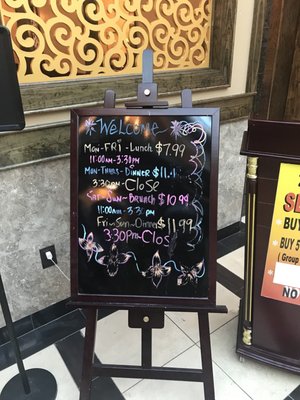 Welcome
Mon-Fri-Lunch $7.99
11:00am-3:30pm
Mon-Thurs-Dinner $11.
3:30pm-Close
Sat-Sun-Brunch $10.99
11:00am-3:30pm
Fri-Sun-Dinner $11.99
3:30pm-Clos
BUY
BUY 5
( Group